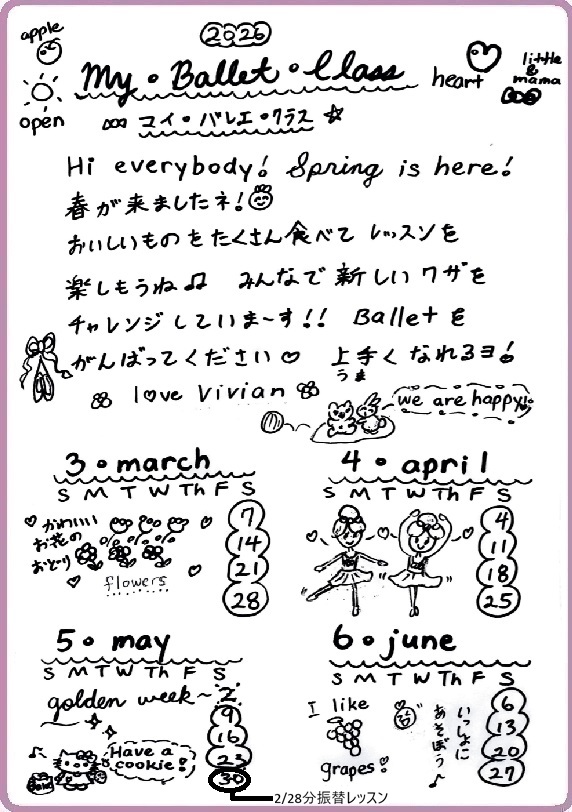 apple
2026
My・Ballet・Class
heart
little & mama
open
マイ・バレエ・クラス☆
Hi everybody! Spring is here!
春が来ましたネ!
おいしいものをたくさん食べて レッスンを
楽しもうね♫ みんなで新しいワザを
チャレンジしていま〜す!! Balletを
がんばってください♡ 上手くなれるヨ!
うま
love Vivian
we are happy!
3・march
S M T W Th F S
♡かわいい
お花の
おどり
flowers
7
14
21
28
4・april
S M T W Th F S
4
11
18
25
5・may
S M T W Th F S
golden week~
2
9
16
23
30
Have a
cookie!
2/28分振替レッスン
6・june
S M T W Th F S
I like
grapes!
いっしょに
あそぼう♪
6
13
20
27